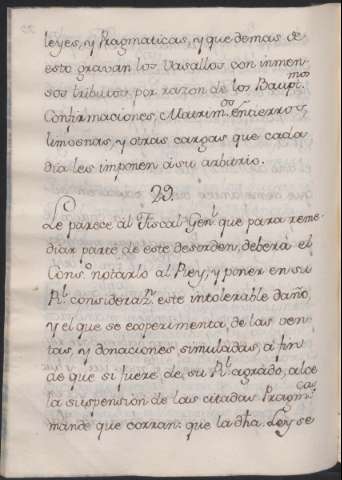 leyes, y Pragmaticas, y que demas de
esto gravan los Vasallos con inmen-
sos tributos, por razon de los Baupt.mos
Confirmaciones, Matrim.os Entierros,
limosnas, y otras cargas que cada
dia les imponen á su arbitrio.
29.
Le parece al Fiscal Gen.l que para reme-
diar parte de este desorden, deberá el
Cons.o notarlo al Rey, y poner en su
R.l consideraz.n este intolerable daño,
y el que se experimenta, de las ven-
tas, y donaciones simuladas, á fin
de que si fuere de su R.l agrado, alce
la suspension de las citadas Pragm.cas
mande que corran: que la dha. Ley se